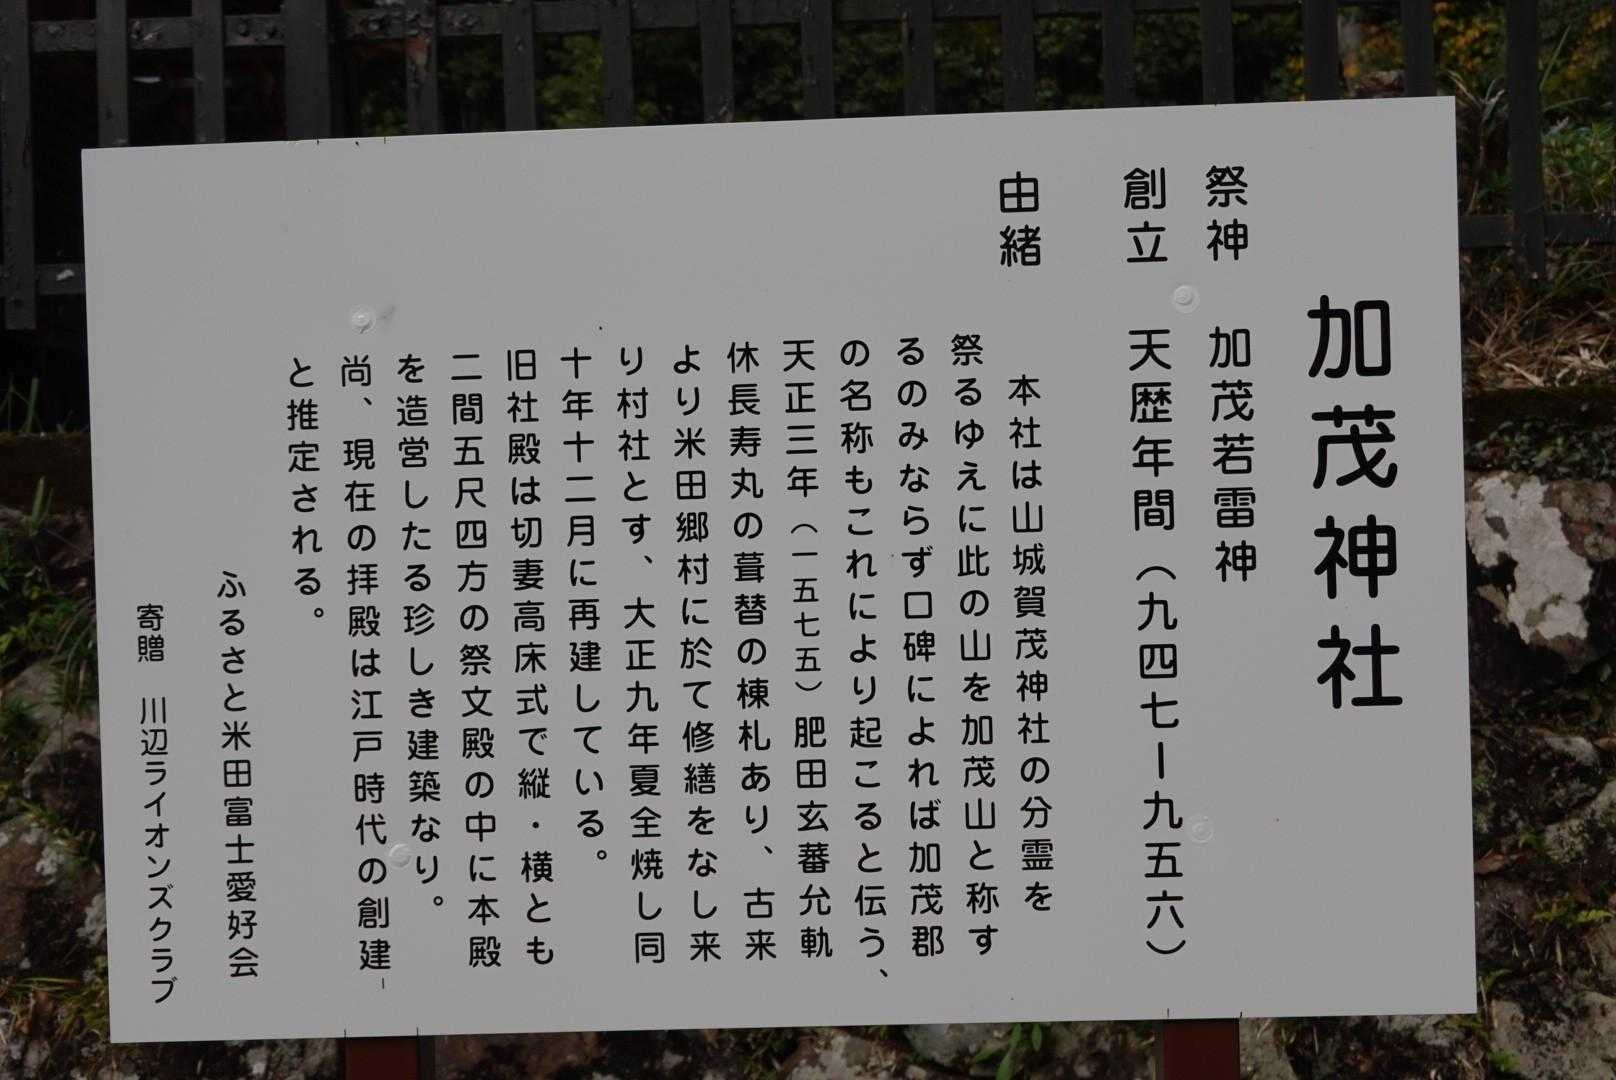 加茂神社
祭神　加茂若雷神
創立　天歴年間（九四七ー九五六）
由緒
本社は山城賀茂神社の分霊を
祭るゆえに此の山を加茂山と称す
るのみならず口碑によれば加茂郡
の名称もこれにより起こると伝う、
天正三年（一五七五）肥田玄蕃允軌
休長寿丸の葺替の棟札あり、古来
より米田郷村に於て修繕をなし来
り村社とす、大正九年夏全焼し同
十年十二月に再建している。
旧社殿は切妻高床式で縦・横とも
二間五尺四方の祭文殿の中に本殿
を造営したる珍しき建築なり。
尚、現在の拝殿は江戸時代の創建
と推定される。
ふるさと米田富士愛好会
寄贈　川辺ライオンズクラブ